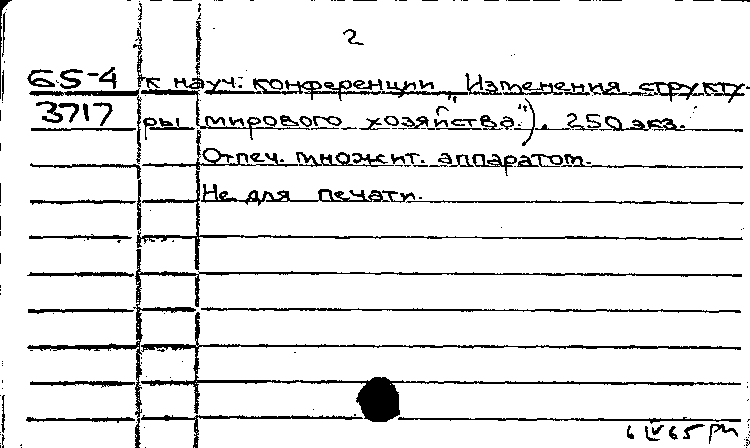 2
65-4 к науч. конференции „Изменения структу-
3717 ры мирового хозяйства"). 250 экз.
Отпеч. множит. аппаратом.
Не для печати.
6 IV 65